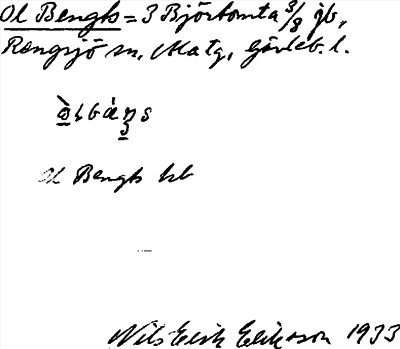 Ol Bengts = 3 Björtomta 3/8 jb,
Rengsjö sn, Matg, Gävleb. l.
Ol Bengts hb
Nils Erik Eriksson 1933